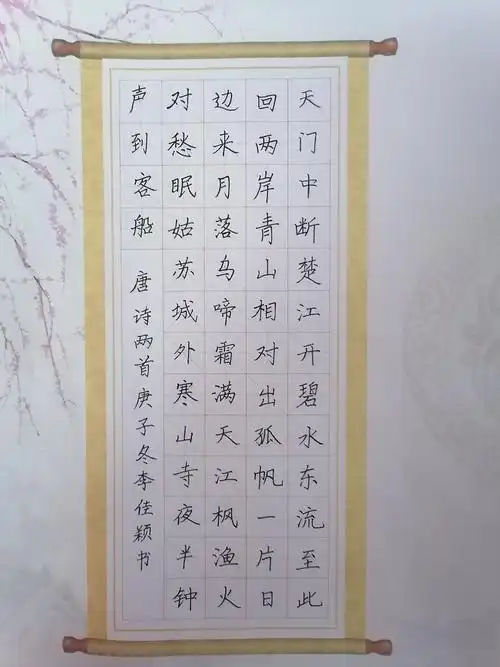 天门中断楚江开碧水东流至此
回两岸青山相对出孤帆一片日
边来月落乌啼霜满天江枫渔火
对愁眠姑苏城外寒山寺夜半钟
声到客船 唐诗两首庚子冬李佳颖书